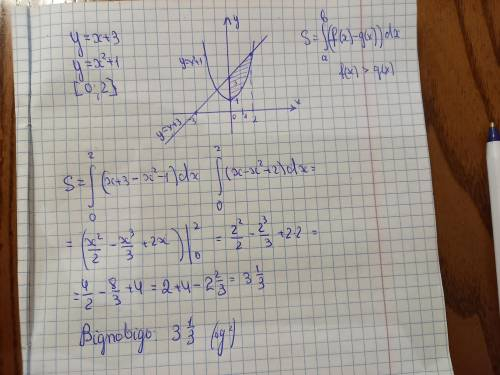 y=x+3
y=x²+1
[0,2]
y
y=x²+1
S
y=x+3
-3
0 1 2
x
S=∫ₐᵇ(f(x)-g(x))dx
f(x)>g(x)
S=∫₀²(x+3-x²-1)dx ∫₀²(x-x²+2)dx=
=(x²/2-x³/3+2x)|₀² = 2²/2-2³/3+2·2=
=4/2-8/3+4=2+4-2 2/3=3 1/3
Вiдповiдь: 3 1/3 (од²)